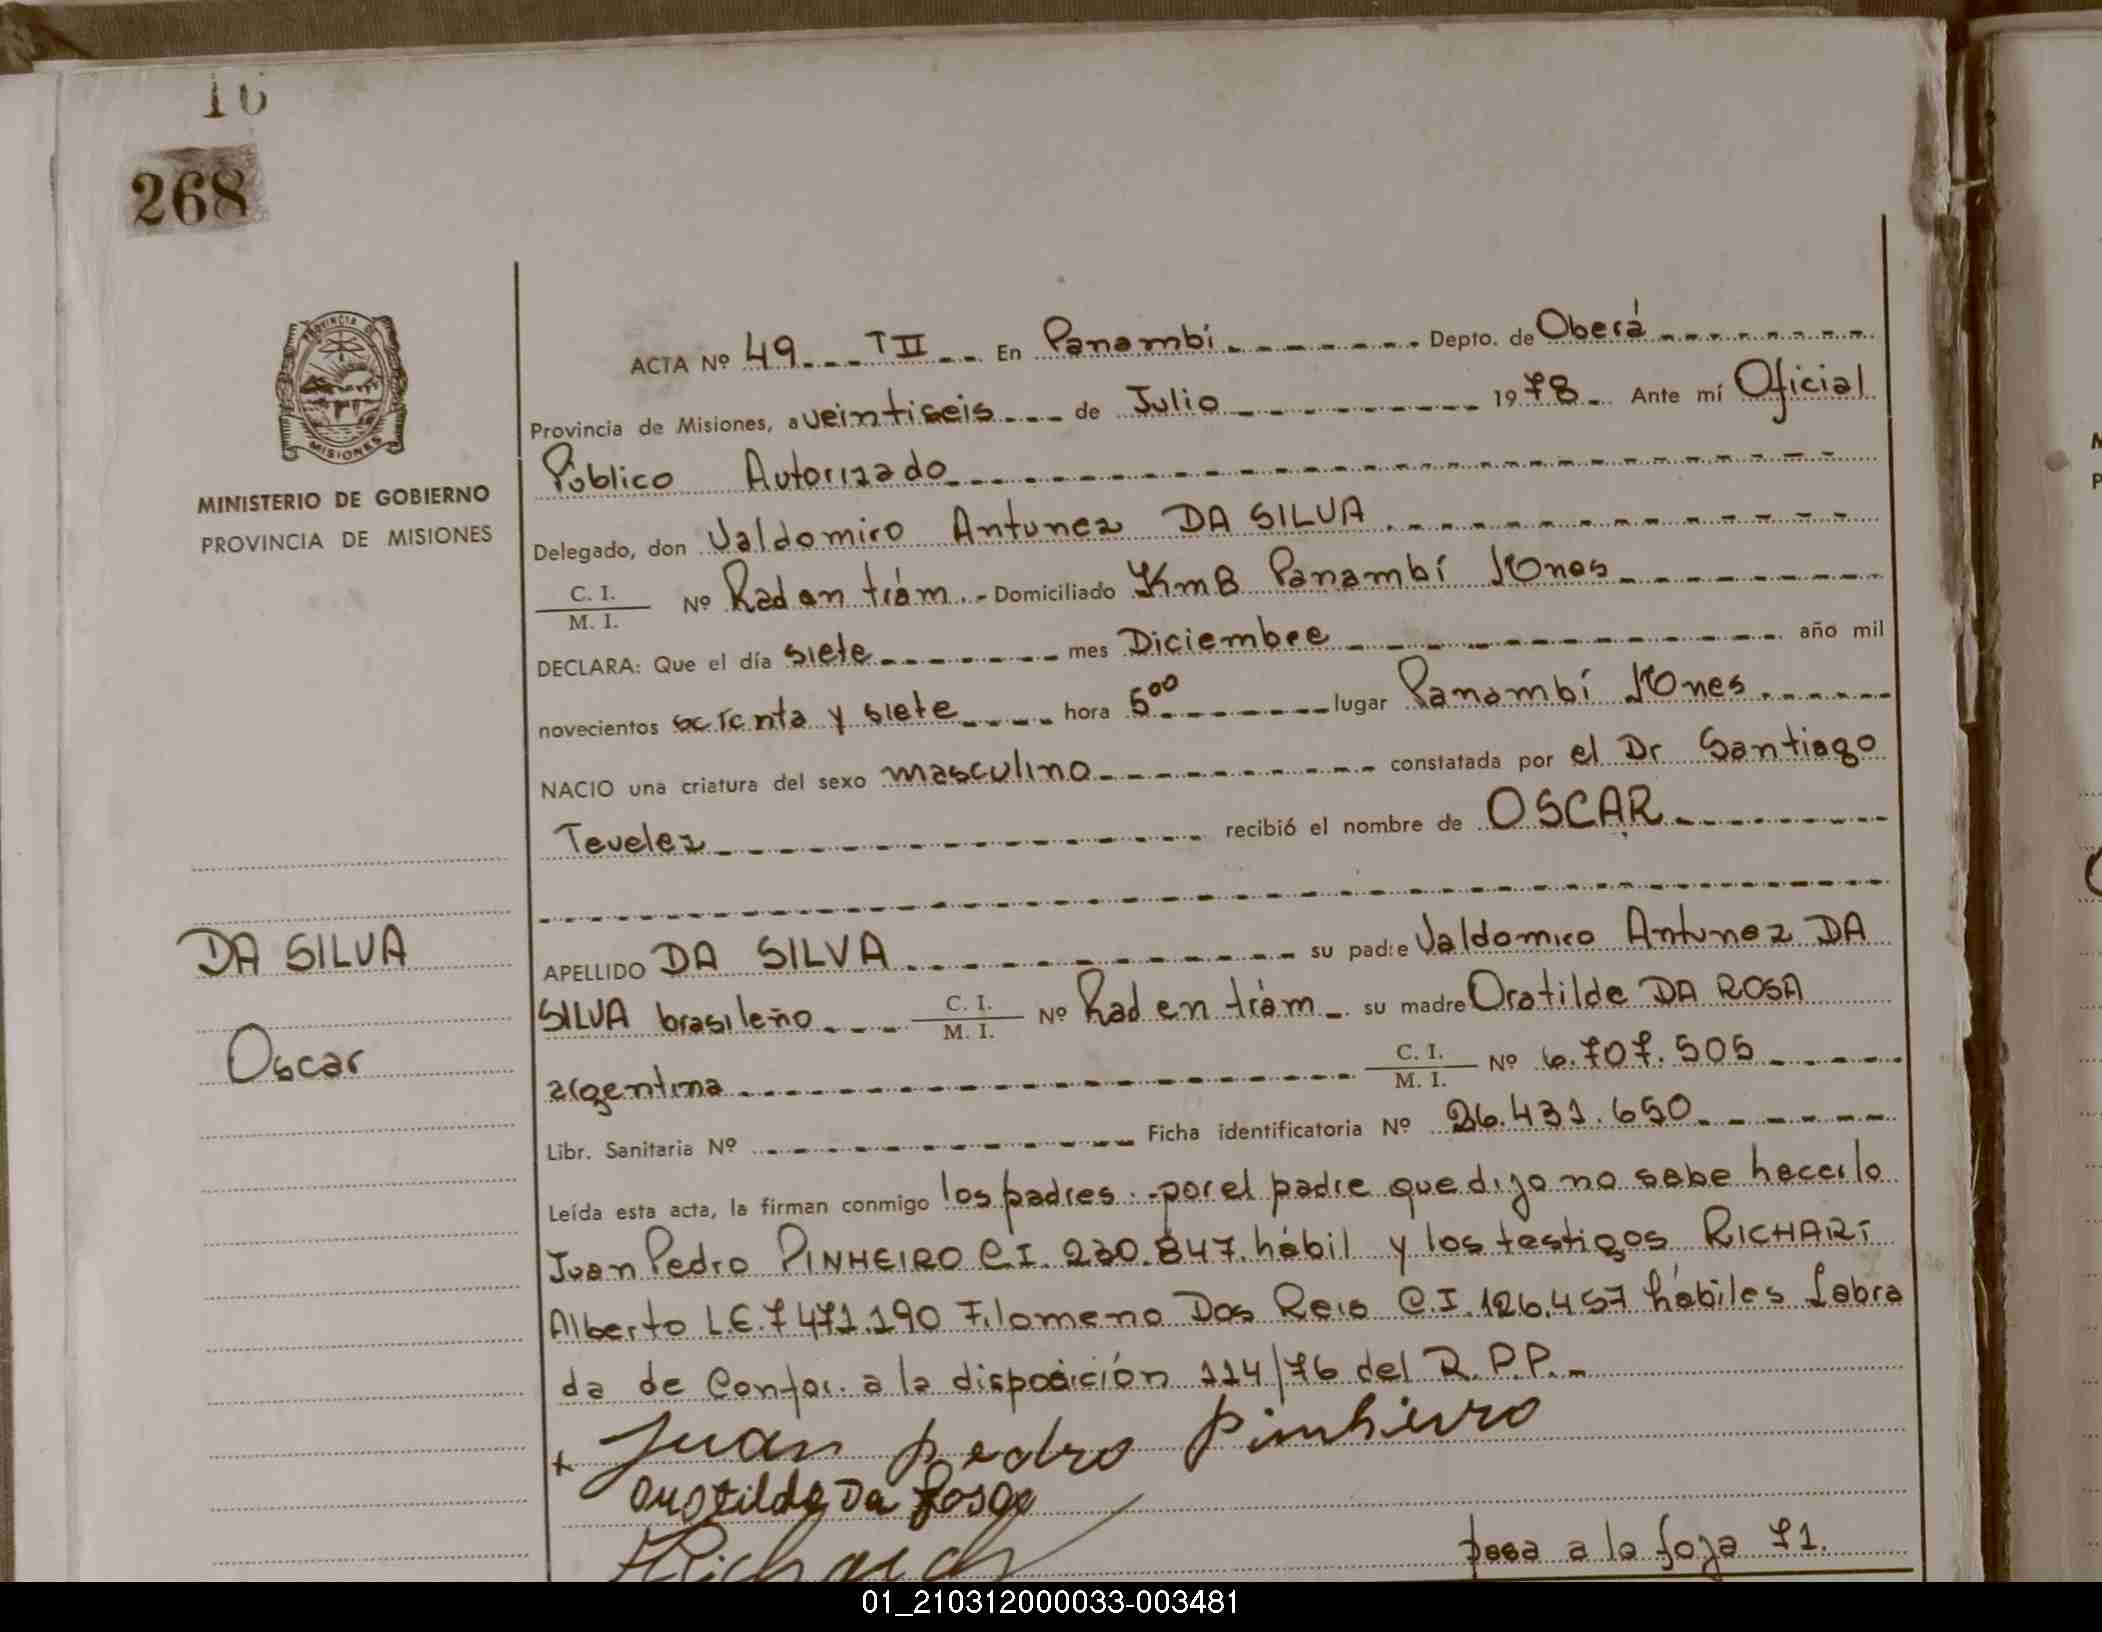 16
268
PROVINCIA DE
MISIONES
MINISTERIO DE GOBIERNO
PROVINCIA DE MISIONES
ACTA Nº 49 T II En Panambí Depto. de Oberá
Provincia de Misiones, a veintiseis de Julio 1978 Ante mí Oficial
Público Autorizado
Delegado, don Valdomiro Antunez DA SILVA
C. I.
M. I.
Nº Rad en trám. Domiciliado Km 8 Panambí Mnes
DECLARA: Que el día siete mes Diciembre año mil
novecientos setenta y siete hora 5⁰⁰ lugar Panambí Mnes
NACIO una criatura del sexo masculino constatada por el Dr Santiago
Tevelez recibió el nombre de OSCAR
DA SILVA
APELLIDO DA SILVA su padre Valdomiro Antunez DA
SILVA brasileño C. I. M. I. Nº Rad en trám su madre Oratilde DA ROSA
Oscar
argentina C. I. M. I. Nº 6.707.505
Libr. Sanitaria Nº Ficha identificatoria Nº 26.431.650
Leída esta acta, la firman conmigo los padres.-por el padre que dijo no sabe hacerlo
Juan Pedro PINHEIRO C.I. 230.847. hábil y los testigos RICHART
Alberto L.E. 7 471.190 Filomeno Dos Reis C.I. 126.457 hábiles Labra
da de Confor. a la disposición 114/76 del R.P.P.-
x Juan pedro pinheiro
Da Rosa
pasa a la foja 71.
01_210312000033-003481